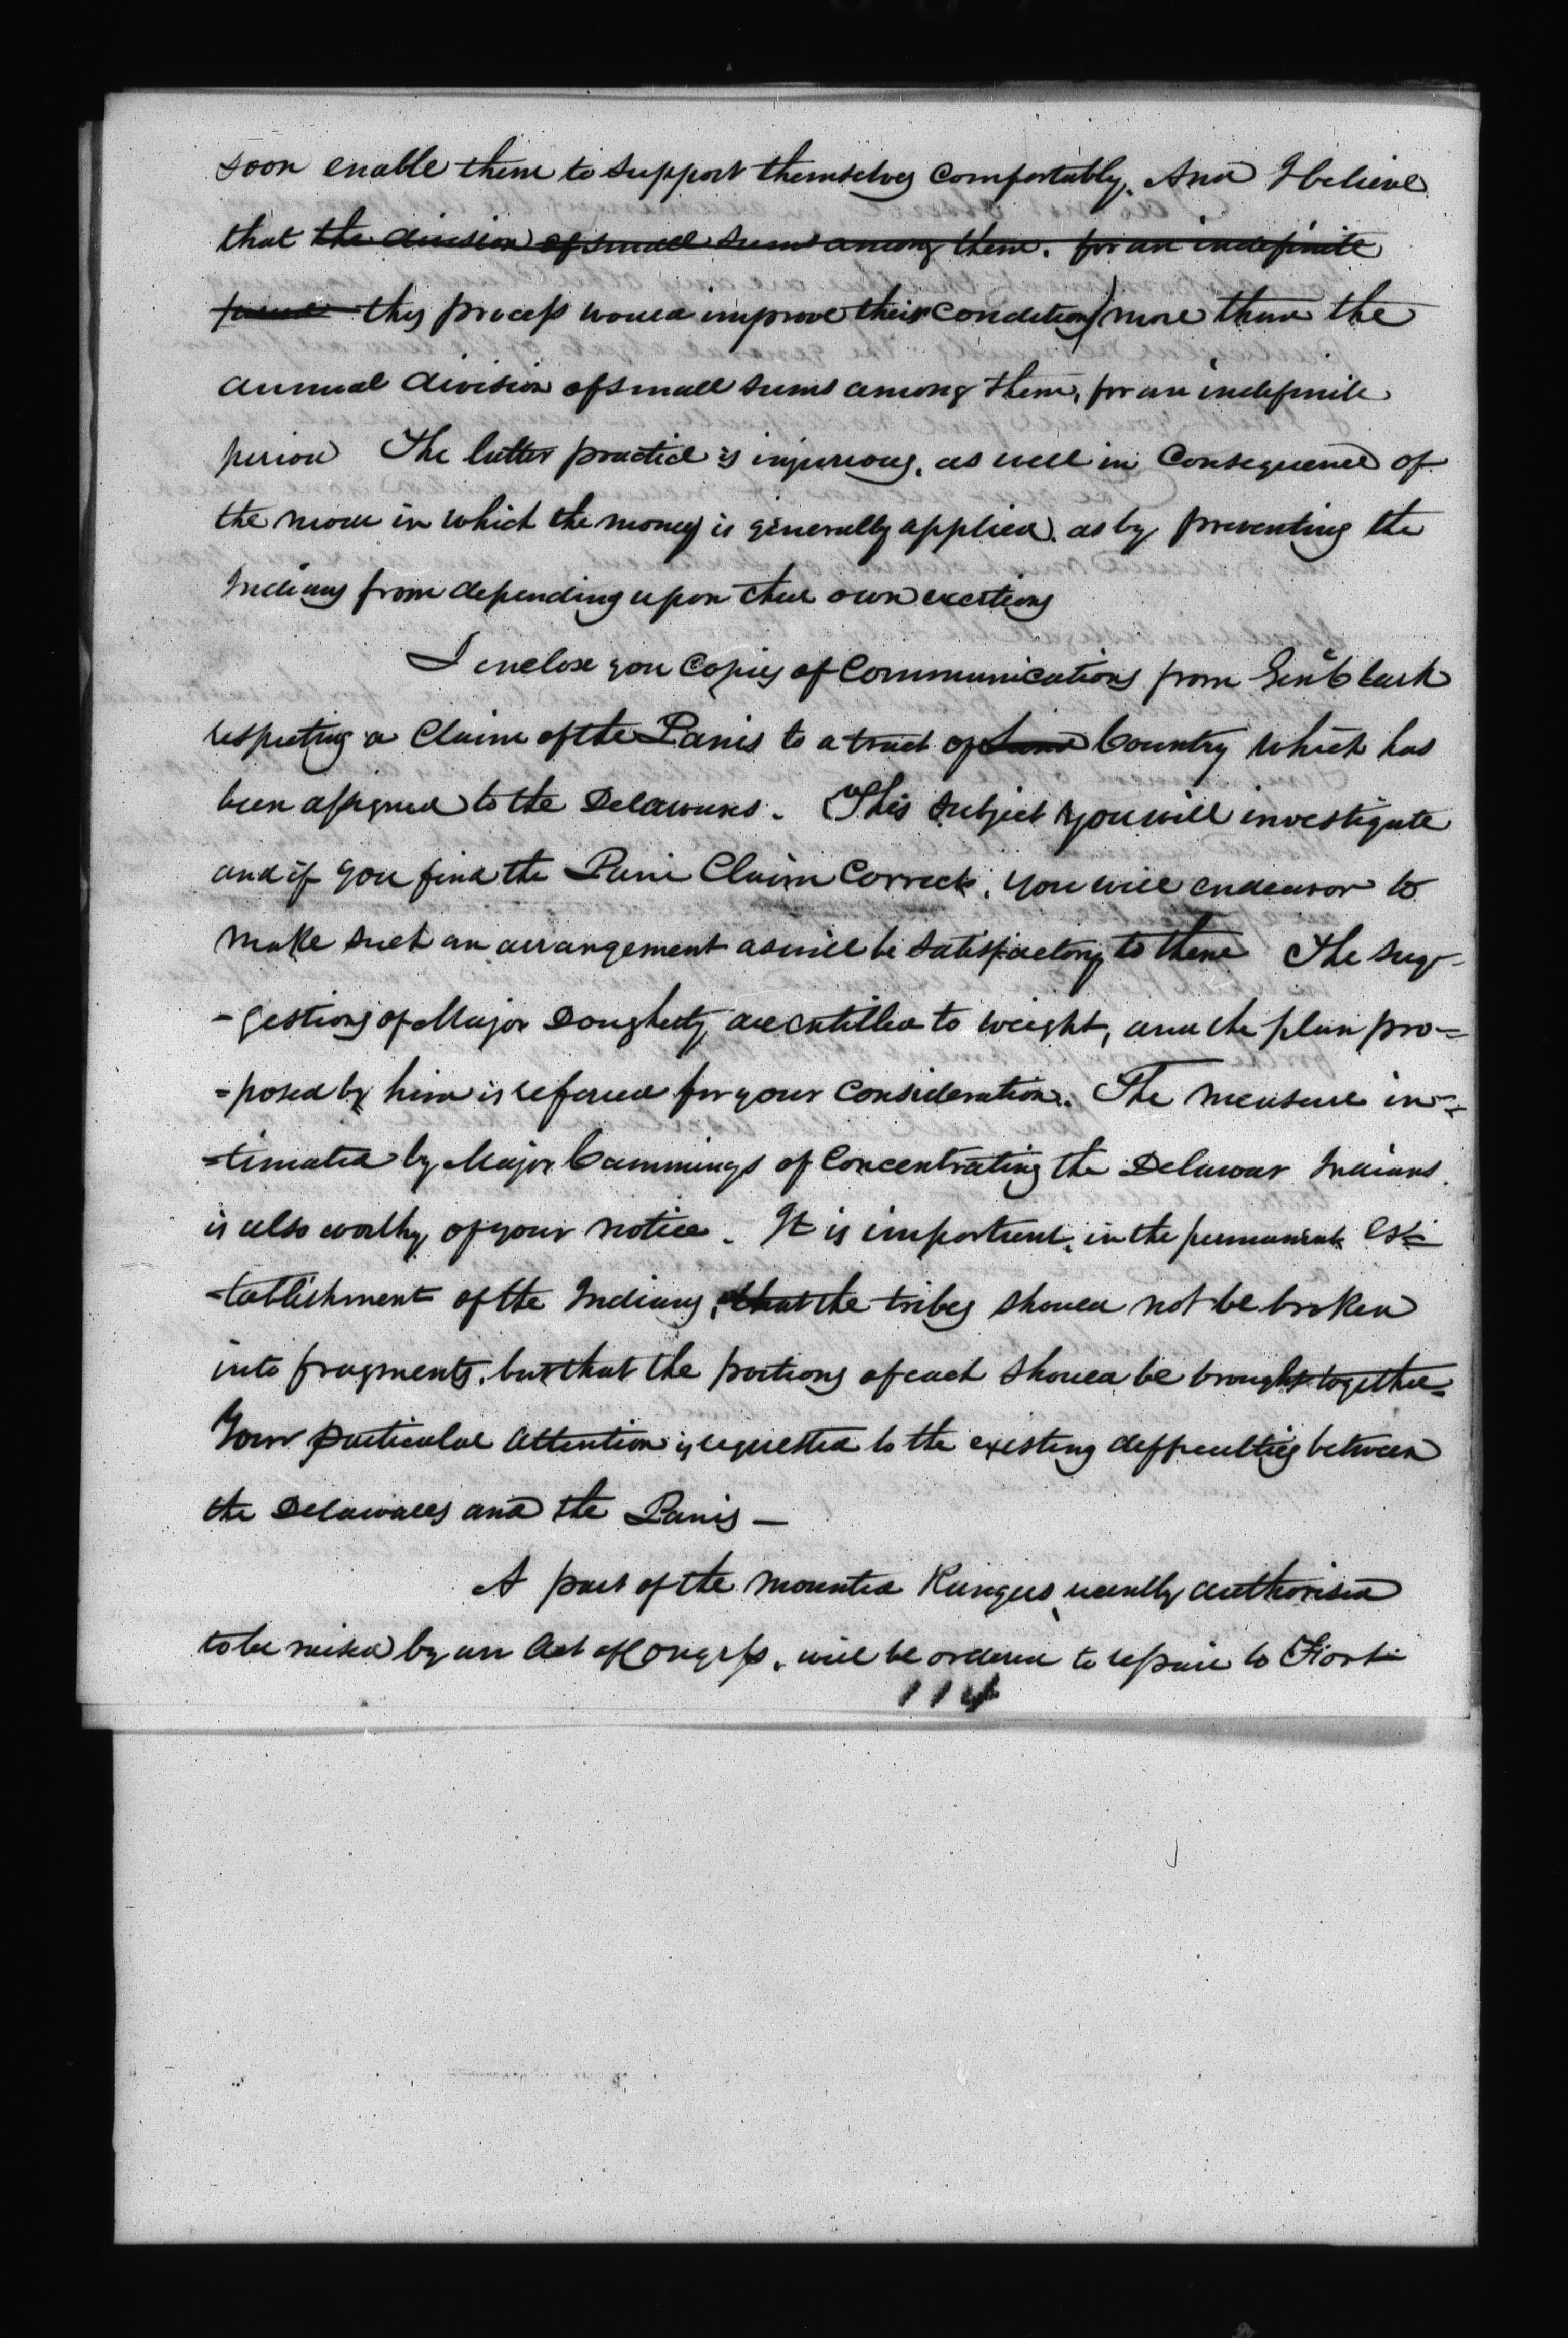 soon enable them to support themselves comfortably. And I believe
that the division of small sums among them. for an indefinite
period this process would improve their condition more than the
annual division of small sums among them, for an indefinite
period The latter practice is injurious, as well in Consequence of
the mode in which the money is generally applied. as by preventing the
Indians from depending upon their own exertions
I enclose you Copies of Communications from Genl Clark
respecting a Claim of the Panis to a tract of Land Country which has
been assigned to the Delawares. This subject you will investigate
and if you find the Pani Claim Correct, you will endeavor to
make such an arrangement as will be satisfactory to them The sug-
-gestions of Major Dougherty are entitled to weight, and the plan pro=
=posed by him is referred for your Consideration. The measure in=
=timated by Major Cummings of Concentrating the Delawar Indians
is also worthy of your notice. It is important, in the permanent es=
-tablishment of the Indians, that the tribes should not be broken
into fragments, but that the portions of each should be brought together=
Your particular attention is requested to the existing deffeculties between
the Delawares and the Panis —
A part of the mounted Rangers, recently authorised
to be raised by an Act of Congress, will be ordered to repair to Fort
114